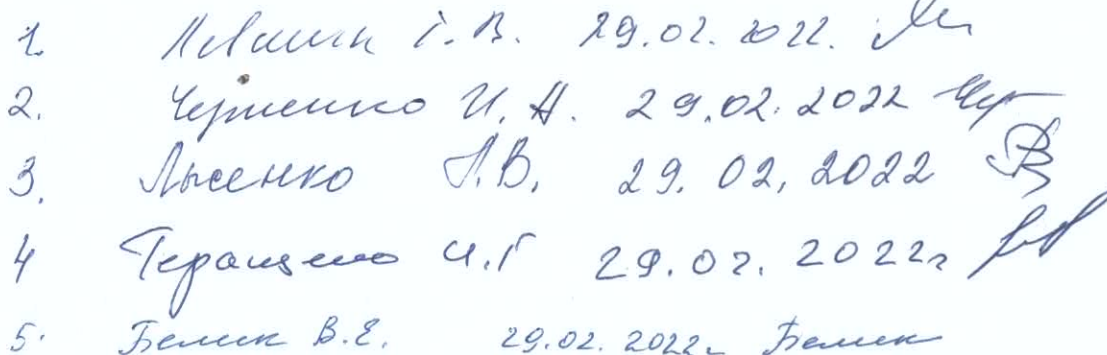 1. Г.В. 29.02.2022.
2. Черненко И.А. 29.02.2022
3. Лысенко Л.В. 29.02.2022
4 Геращенко И.Г 29.02.2022г
5. Белик В.Е. 29.02.2022г Белик